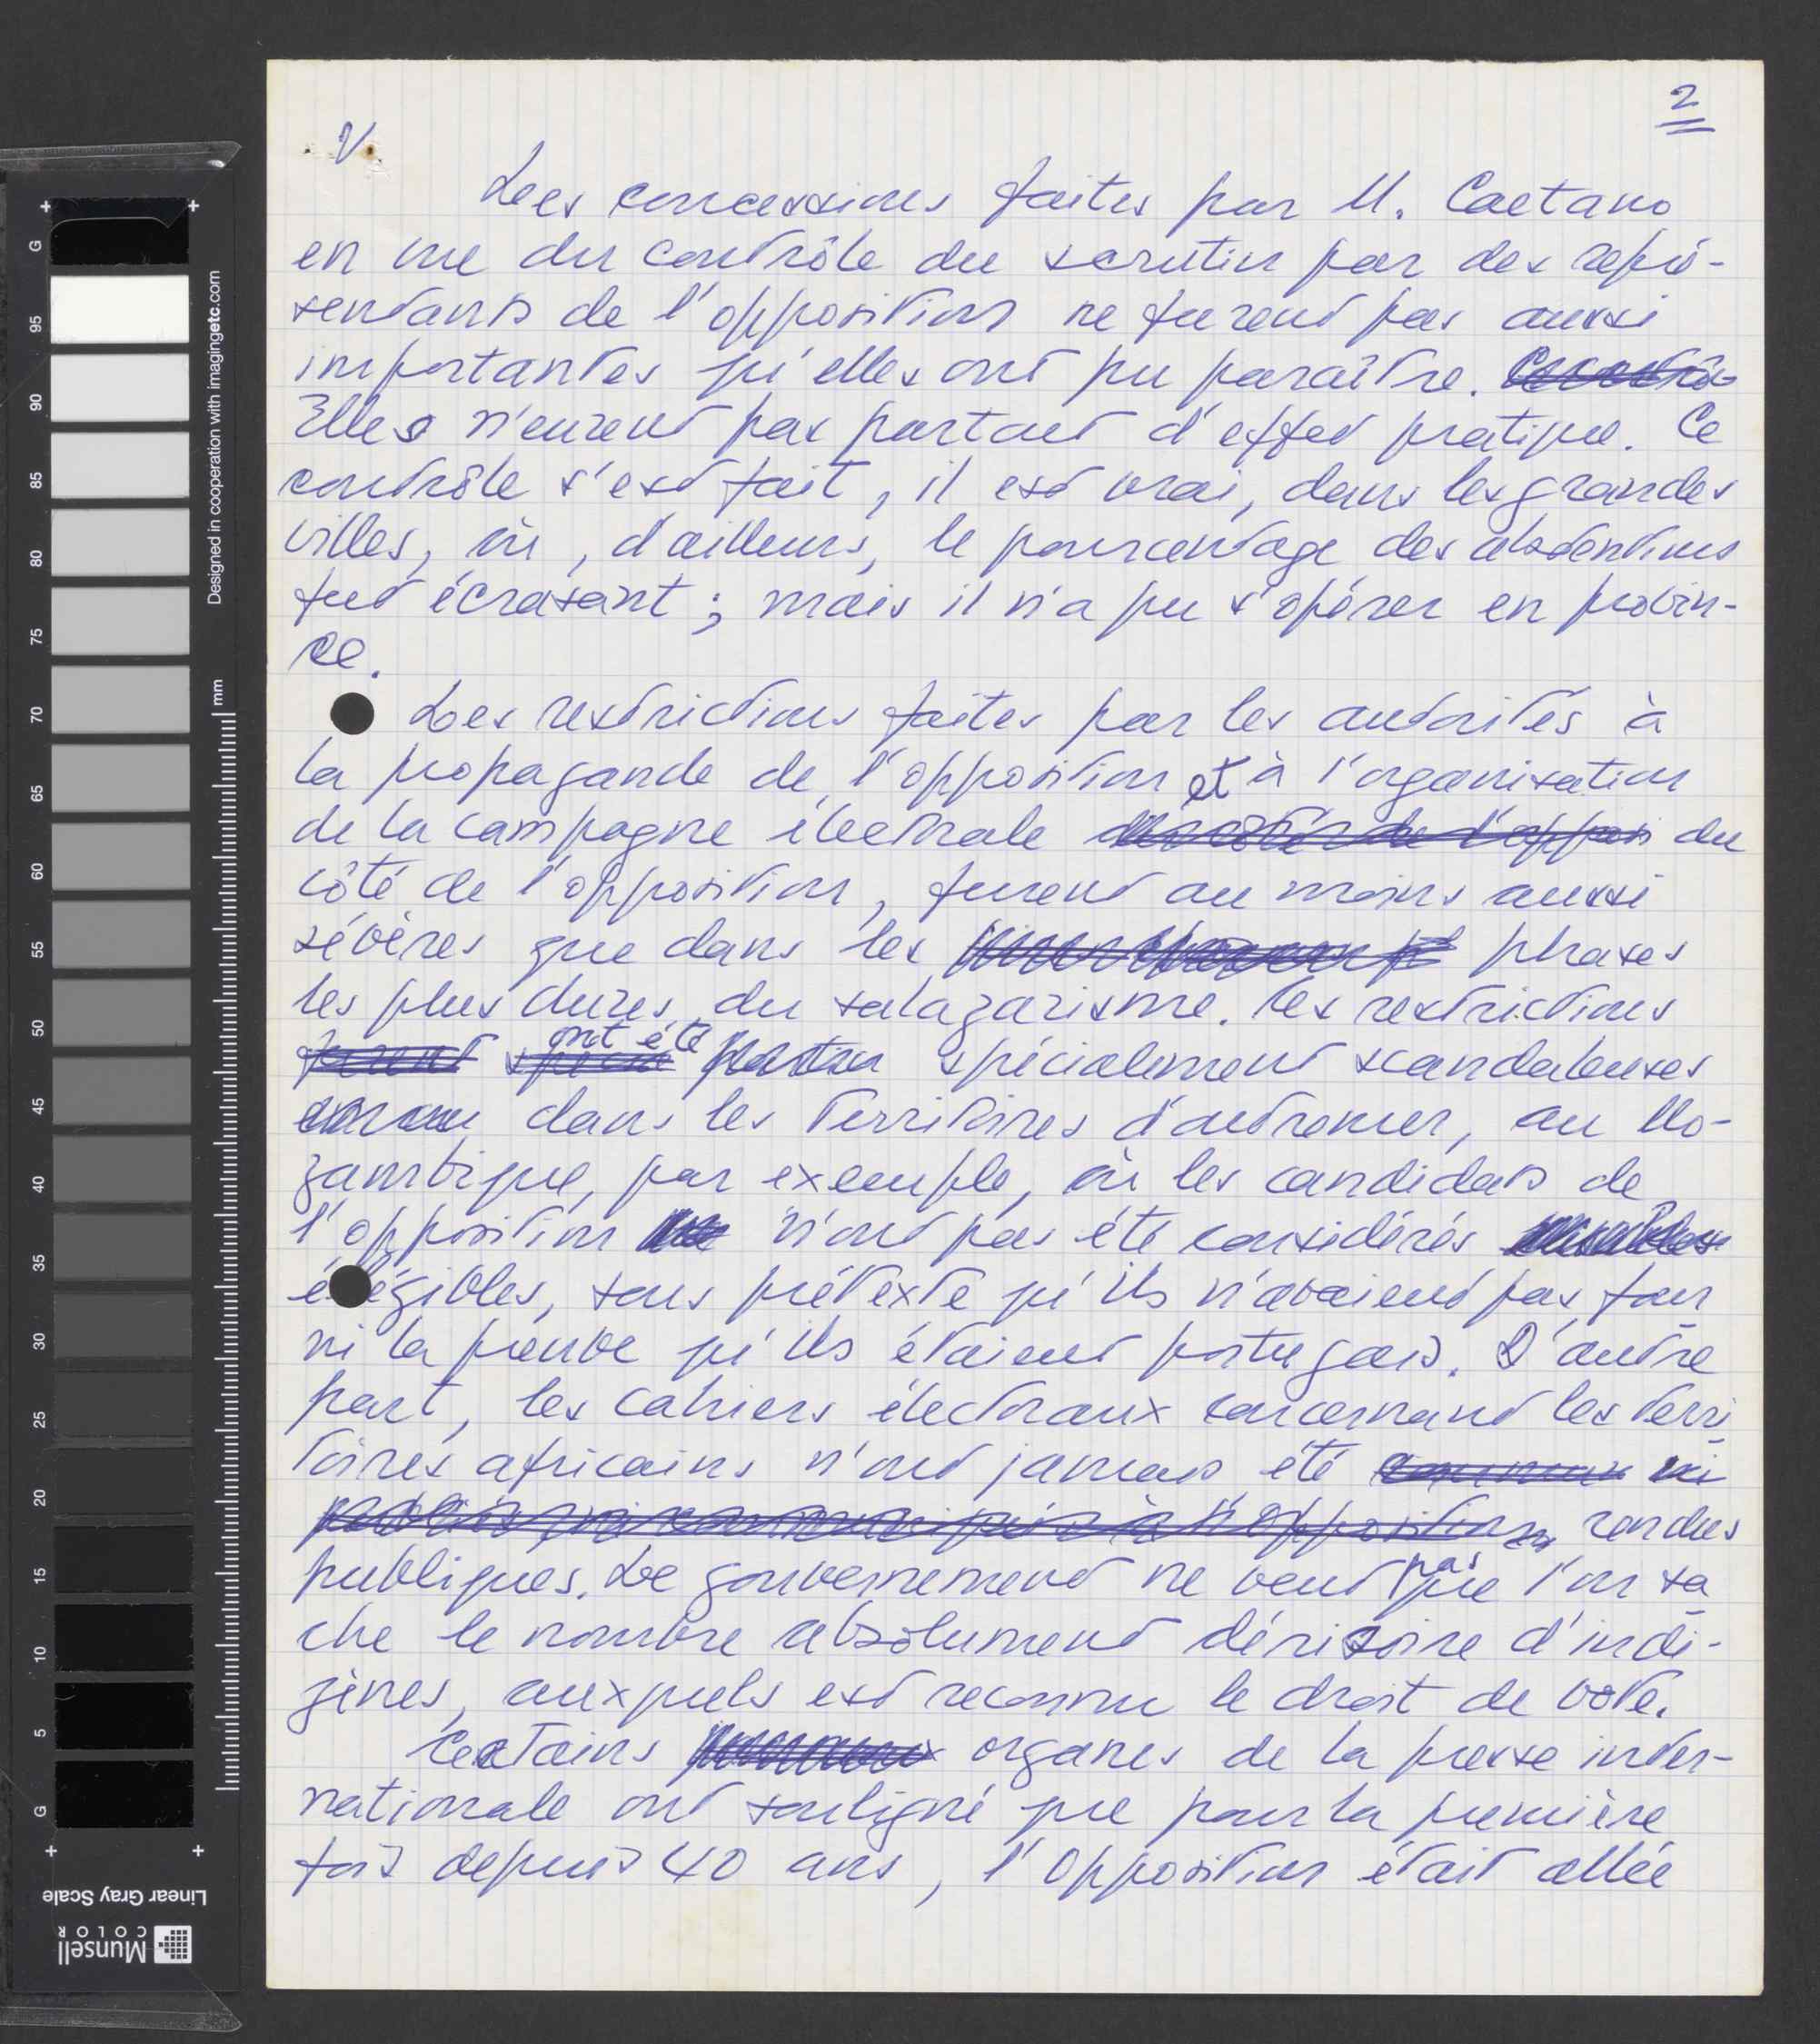 2
V
Les concessions faites par M. Caetano
en vue du contrôle du scrutin par des repré-
sentants de l'opposition ne furent pas aussi
importantes qu'elles ont pu paraître.
Elles n'eurent pas partout d'effet pratique. Ce
contrôle s'est fait, il est vrai, dans les grandes
villes, où, d'ailleurs, le pourcentage des abstentions
fut écrasant ; mais il n'a pu s'opérer en provin-
ce.
Les restrictions faites par les autorités à
la propagande de l'opposition et à l'organisation
de la campagne électorale du côté de l'oppos du
côté de l'opposition, furent au moins aussi
sévères que dans les phases
les plus dures du salazarisme. Les restrictions
ont été
furent spécialement scandaleuses
dans les territoires d'outremer, au Mo-
zambique, par exemple, où les candidats de
l'opposition n'ont pas été considérés
éligibles, sous prétexte qu'ils n'avaient pas four
ni la preuve qu'ils étaient portugais. D'autre
part, les cahiers électoraux concernant les terri
toires africains n'ont jamais été ni
publiés ni communiqués à l'opposition rendus
pas
publiques. Le gouvernement ne veut que l'on sa
che le nombre absolument dérisoire d'indi-
gènes, auxquels est reconnu le droit de vote.
Certains organes de la presse inter-
nationale ont souligné que pour la première
fois depuis 40 ans, l'Opposition était allée
Designed in cooperation with imagingetc.com
mm
G
95
90
85
80
75
70
65
60
55
50
45
40
35
30
25
20
15
10
5
G
Linear Gray Scale
Munsell
COLOR